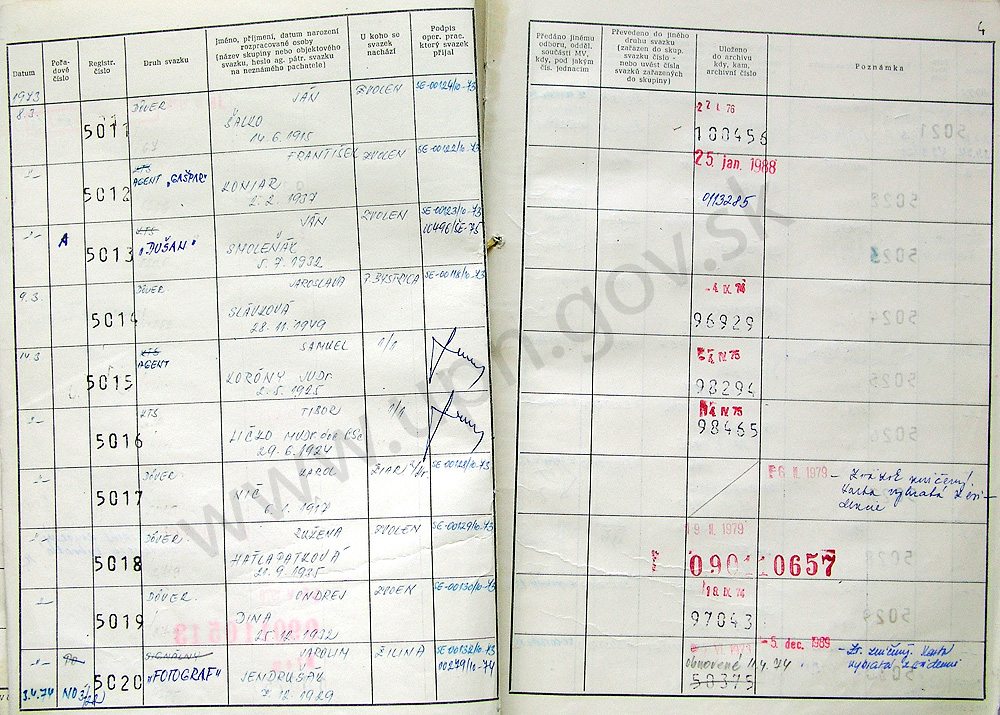 Datum
Pořa-
dové
číslo
Registr.
číslo
Druh svazku
Jméno, příjmení, datum narození
rozpracované osoby
(název skupiny nebo objektového
svazku, heslo ag. pátr. svazku
na neznámého pachatele)
U koho se
svazek
nachází
Podpis
oper. prac.
který svazek
přijal
1973
8.3.
5011
DÔVER
JÁN
14.6.1915
ZVOLEN
SE-00124/10-73
5012
KTS
AGENT „GAŠPAR"
FRANTIŠEK
KONIAR
2.2.1937
ZVOLEN
SE-00122/10-73
A
5013
KTS
„DUŠAN"
JÁN
SMOLENÁK
5.7.1932
ZVOLEN
SE-00123/10-73
9.3.
5014
DÔVER
JAROSLAVA
SLÁVKOVÁ
28.11.1949
P. BYSTRICA
SE-00118/10-73
14.3
5015
KTS
AGENT
SAMUEL
KORÓNY JUDr.
2.5.1925
5016
KTS
TIBOR
LIČKO MVDr doc CSc
29.6.1924
5017
DÔVER
KAROL
VIČ
1917
ŽIAR
SE-00128/10-73
5018
DÔVER.
RUŽENA
HATLAPATKOVÁ
9.1925
ZVOLEN
SE-00129/10-73
5019
DÔVER.
ONDREJ
DINA
25.12.1932
ZVOLEN
SE-00130/10-73
3.4.74
5020
SIGNÁLNY
„FOTOGRAF"
KAROLIM
JENDRUŠÁK
7.12.1929
ŽILINA
SE-00132/10-73
00279/10-74
4
Předáno jinému
odboru, odděl.
součásti MV,
kdy, pod jakým
čís. jednacím
Převedeno do jiného
druhu svazku
(zařazen do skup.
svazku číslo -
nebo uvést čísla
svazků zařazených
do skupiny)
Uloženo
do archivu
kdy, kam,
archivní číslo
Poznámka
100456
25. jan. 1988
0113285
-4. IX. 74
96929
IV. 75
98294
4. IV. 75
98465
II. 1979
19. II. 1979
090110657
18. IX. 74
97043
- 5. dec. 1989
obnovené 11.4.74
50375
www.upn.gov.sk